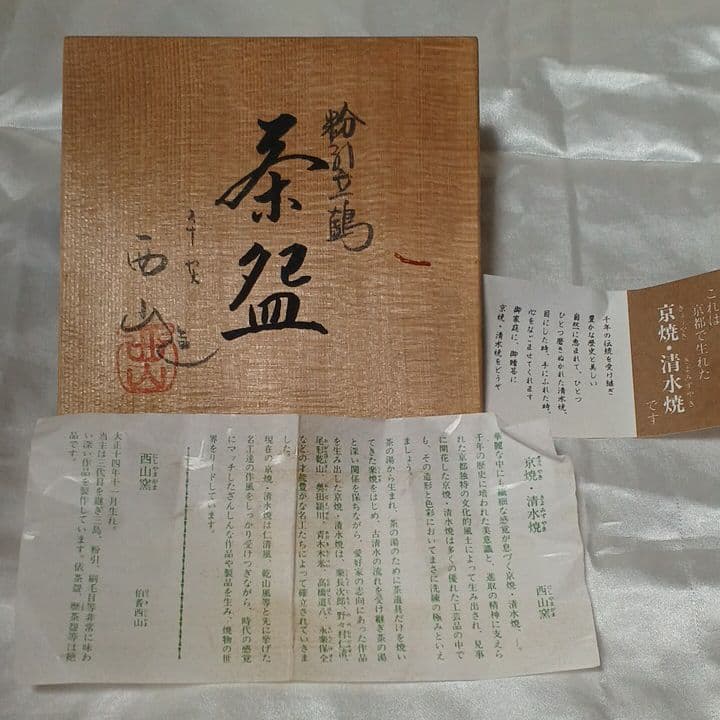 粉引雲鶴
茶盌
平安
西山造
これは
京都で生れた
京焼・清水焼です
きょうやき
きよみずやき
千年の伝統を受け継ぎ
豊かな歴史と美しい
自然に恵まれて、ひとつ
ひとつ磨きぬかれた清水焼、
目にした時、手にふれた時、
心をなごませてくれます
御家庭に、御贈答に
京焼・清水焼をどうぞ
京焼・清水焼
西山窯
華麗な中にも繊細な感覚が息づく京焼・清水焼――。
千年の歴史に培われた美意識と、進取の精神に支えら
れた京都独特の文化的風土によって生み出され、見事
に開花した京焼・清水焼は多くの優れた工芸品の中で
も、その造形と色彩においてまさに洗練の極みといえ
ましょう。
茶の湯から生まれ、茶の湯のために茶道具だけを焼い
てきた楽焼をはじめ、古清水の流れを受け継ぎ茶の湯
と深い関係を保ちながら、愛好家の志向にあった作品
を生み出した京焼・清水焼は、楽長次郎、野々村仁清、
尾形乾山、奥田頴川、青木木米、高橋道八、永楽保全
などの才能豊かな名工たちによって確立されていきま
した。
現在の京焼・清水焼は仁清風、乾山風等と先に挙げた
名工達の作風をしっかり受けつぎながら、時代の感覚
にマッチしたざんしんな作品や製品を生み、焼物の世
界をリードしています。
西山窯
伯耆西山
大正十四年十一月生れ。
当主は三代目を継ぎ三島、粉引、刷毛目等非常に味わ
い深い作品を製作しています。俵茶盌、暦茶盌等は絶
品です。